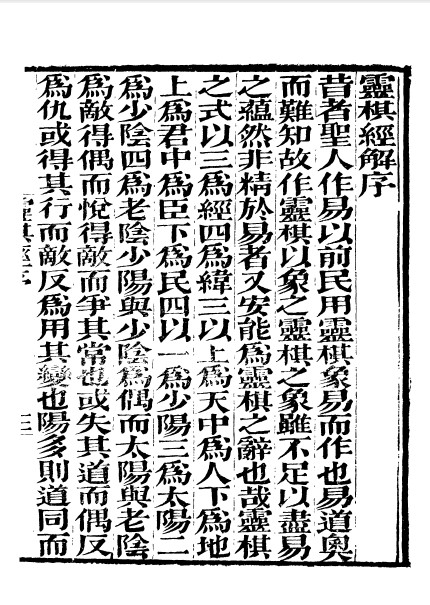 靈棋經解序
昔者聖人作易以前民用靈棋象易而作也易道奧
而難知故作靈棋以象之靈棋之象雖不足以盡易
之蘊然非精於易者又安能爲靈棋之辭也哉靈棋
之式以三爲經四爲緯三以上爲天中爲人下爲地
上爲君中爲臣下爲民四以一爲少陽三爲太陽二
爲少陰四爲老陰少陽與少陰爲偶而太陽與老陰
爲敵得偶而悅得敵而爭其常也或失其道而偶反
爲仇或得其行而敵反爲用其變也陽多則道同而